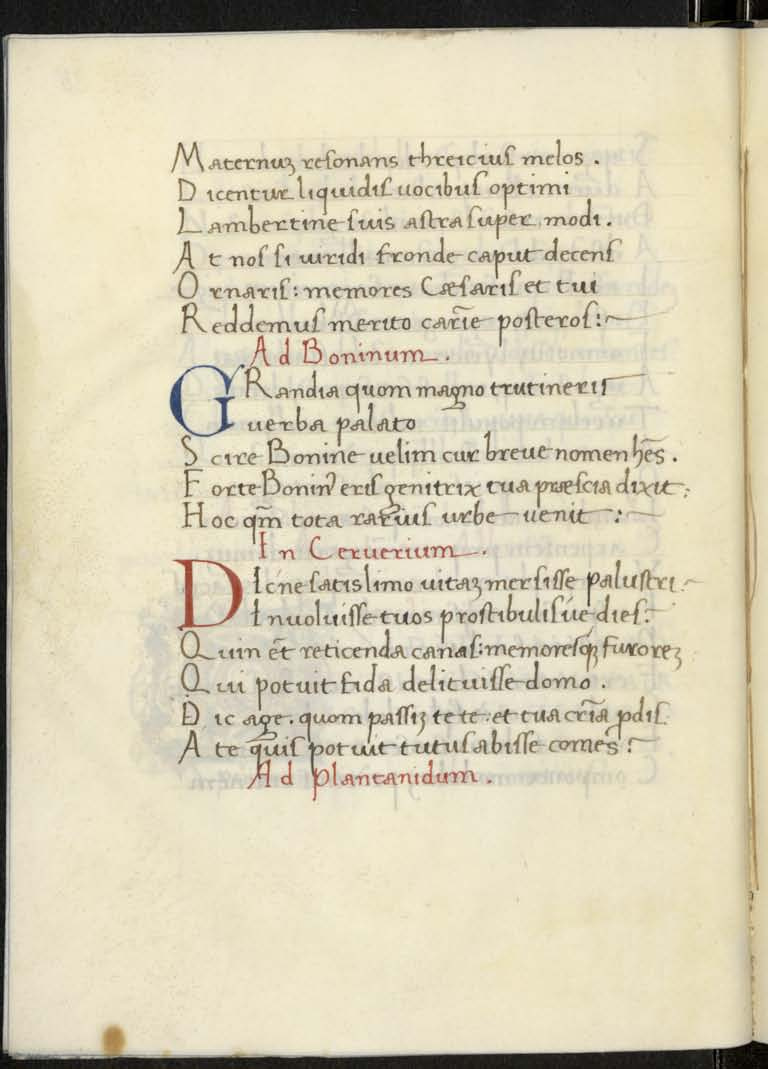 Maternuꝫ reſonans threiciuſ melos .
Dicentur liquidiſ uocibuſ optimi
Lambertine ſuis aſtra ſuper modi .
At noſ ſi uiridi fronde caput decenſ
Ornariſ : memores Cæſariſ et tui
Reddemuſ merito carīe poſteroſ :~
Ad Boninum .
GRandia quom magno trutineriſ
uerba palato
Scire Bonine uelim cur breue nomen hēs .
Forte Bonin᾽ eriſ genitrix tua præſcia dixit ;
Hoc qm̄ tota rariuſ urbe uenit :~
In Ceruerium .
DIc ne ſatis limo uitaꝫ merſiſſe paluſtri .~
Inuoluiſſe tuos proſtibuliſúe dieſ :~
Quin ēt reticenda canaſ : memoreſqꝫ furoreꝫ
Qui potuit fida delituiſſe domo .
Dic age . quom paſſiꝫ te te : et tua cr̄ia pdiſ.
A te quiſ potuit tutuſ abiſſe comes :~
Ad plantanidum .